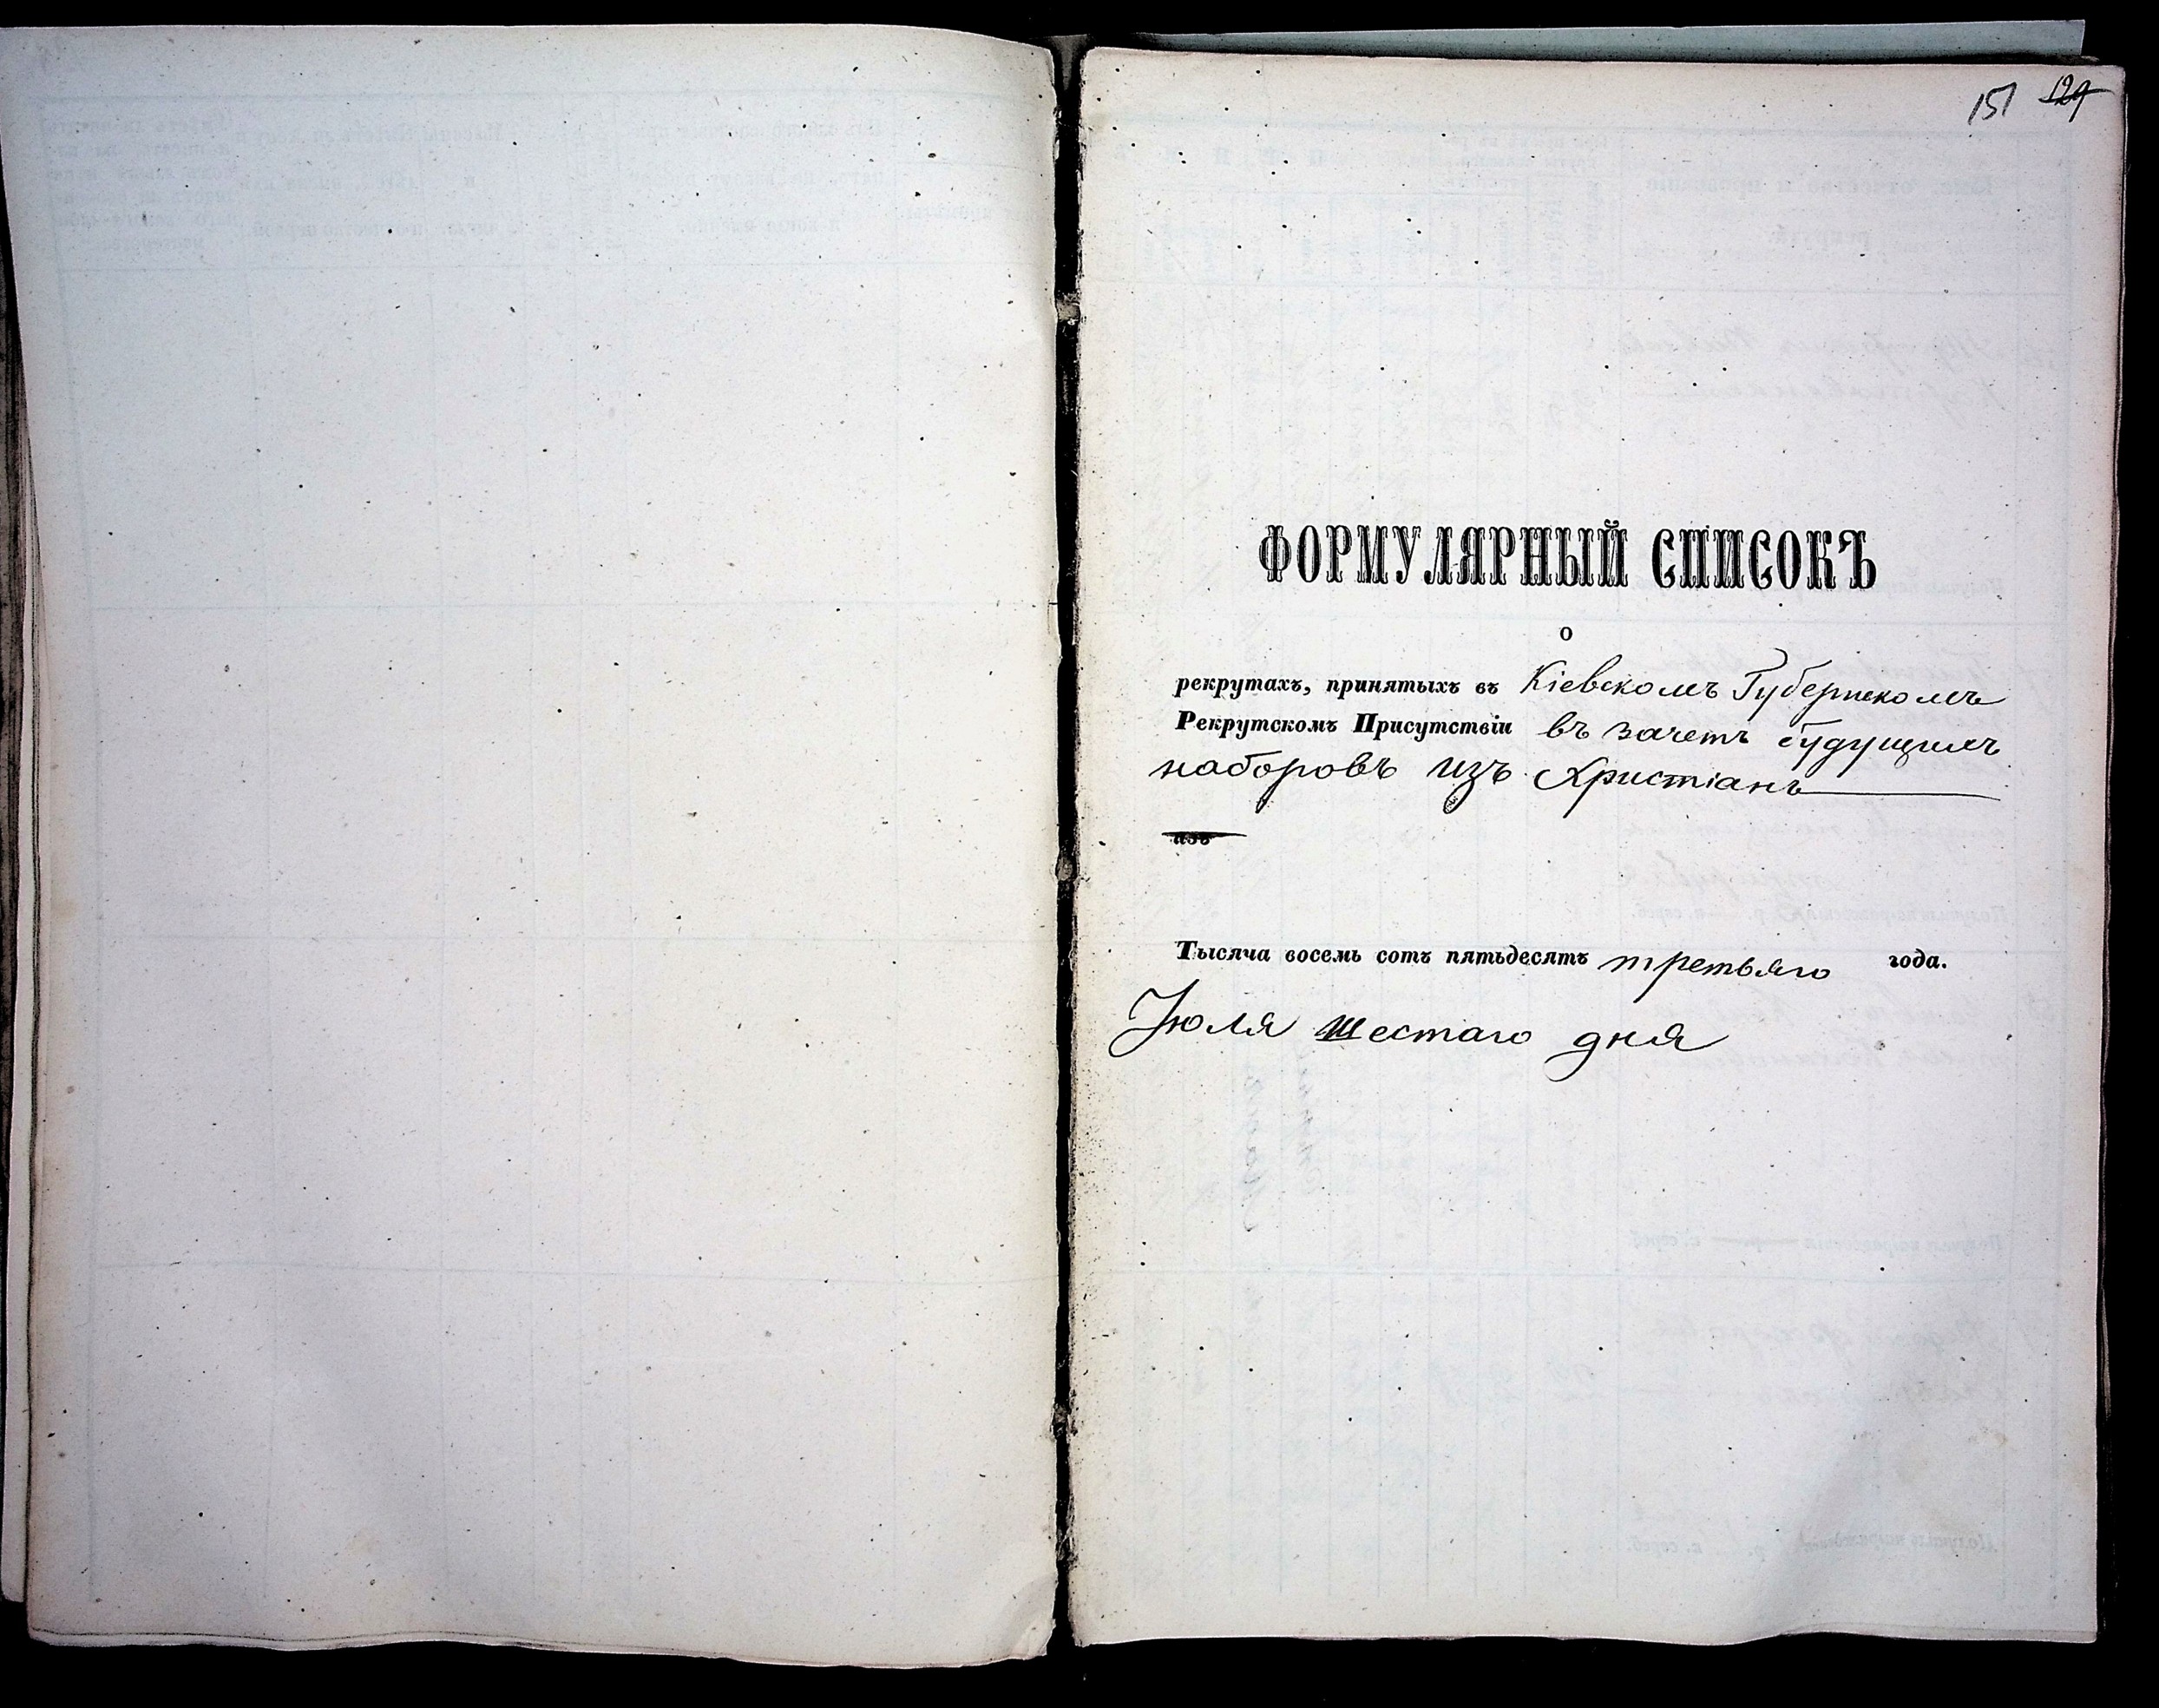 151 129
ФОРМУЛЯРНЫЙ СПИСОКЪ
о
рекрутахъ, принятыхъ въ Кіевскомъ Губернскомъ
Рекрутскомъ Присутствіи въ зачетъ будущихъ
наборовъ изъ Христіанъ
изъ
Тысяча восемь сотъ пятьдесятъ третьяго года.
Іюля шестаго дня